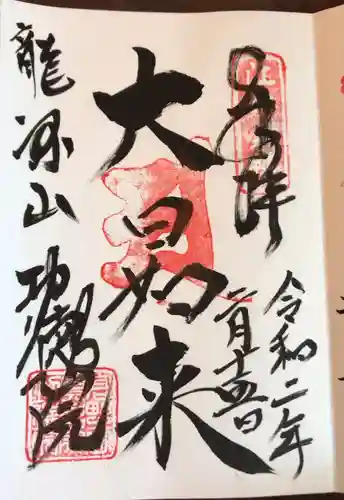 奉拝
令和二年
二月十五日
大日如来
龍 山 功 院